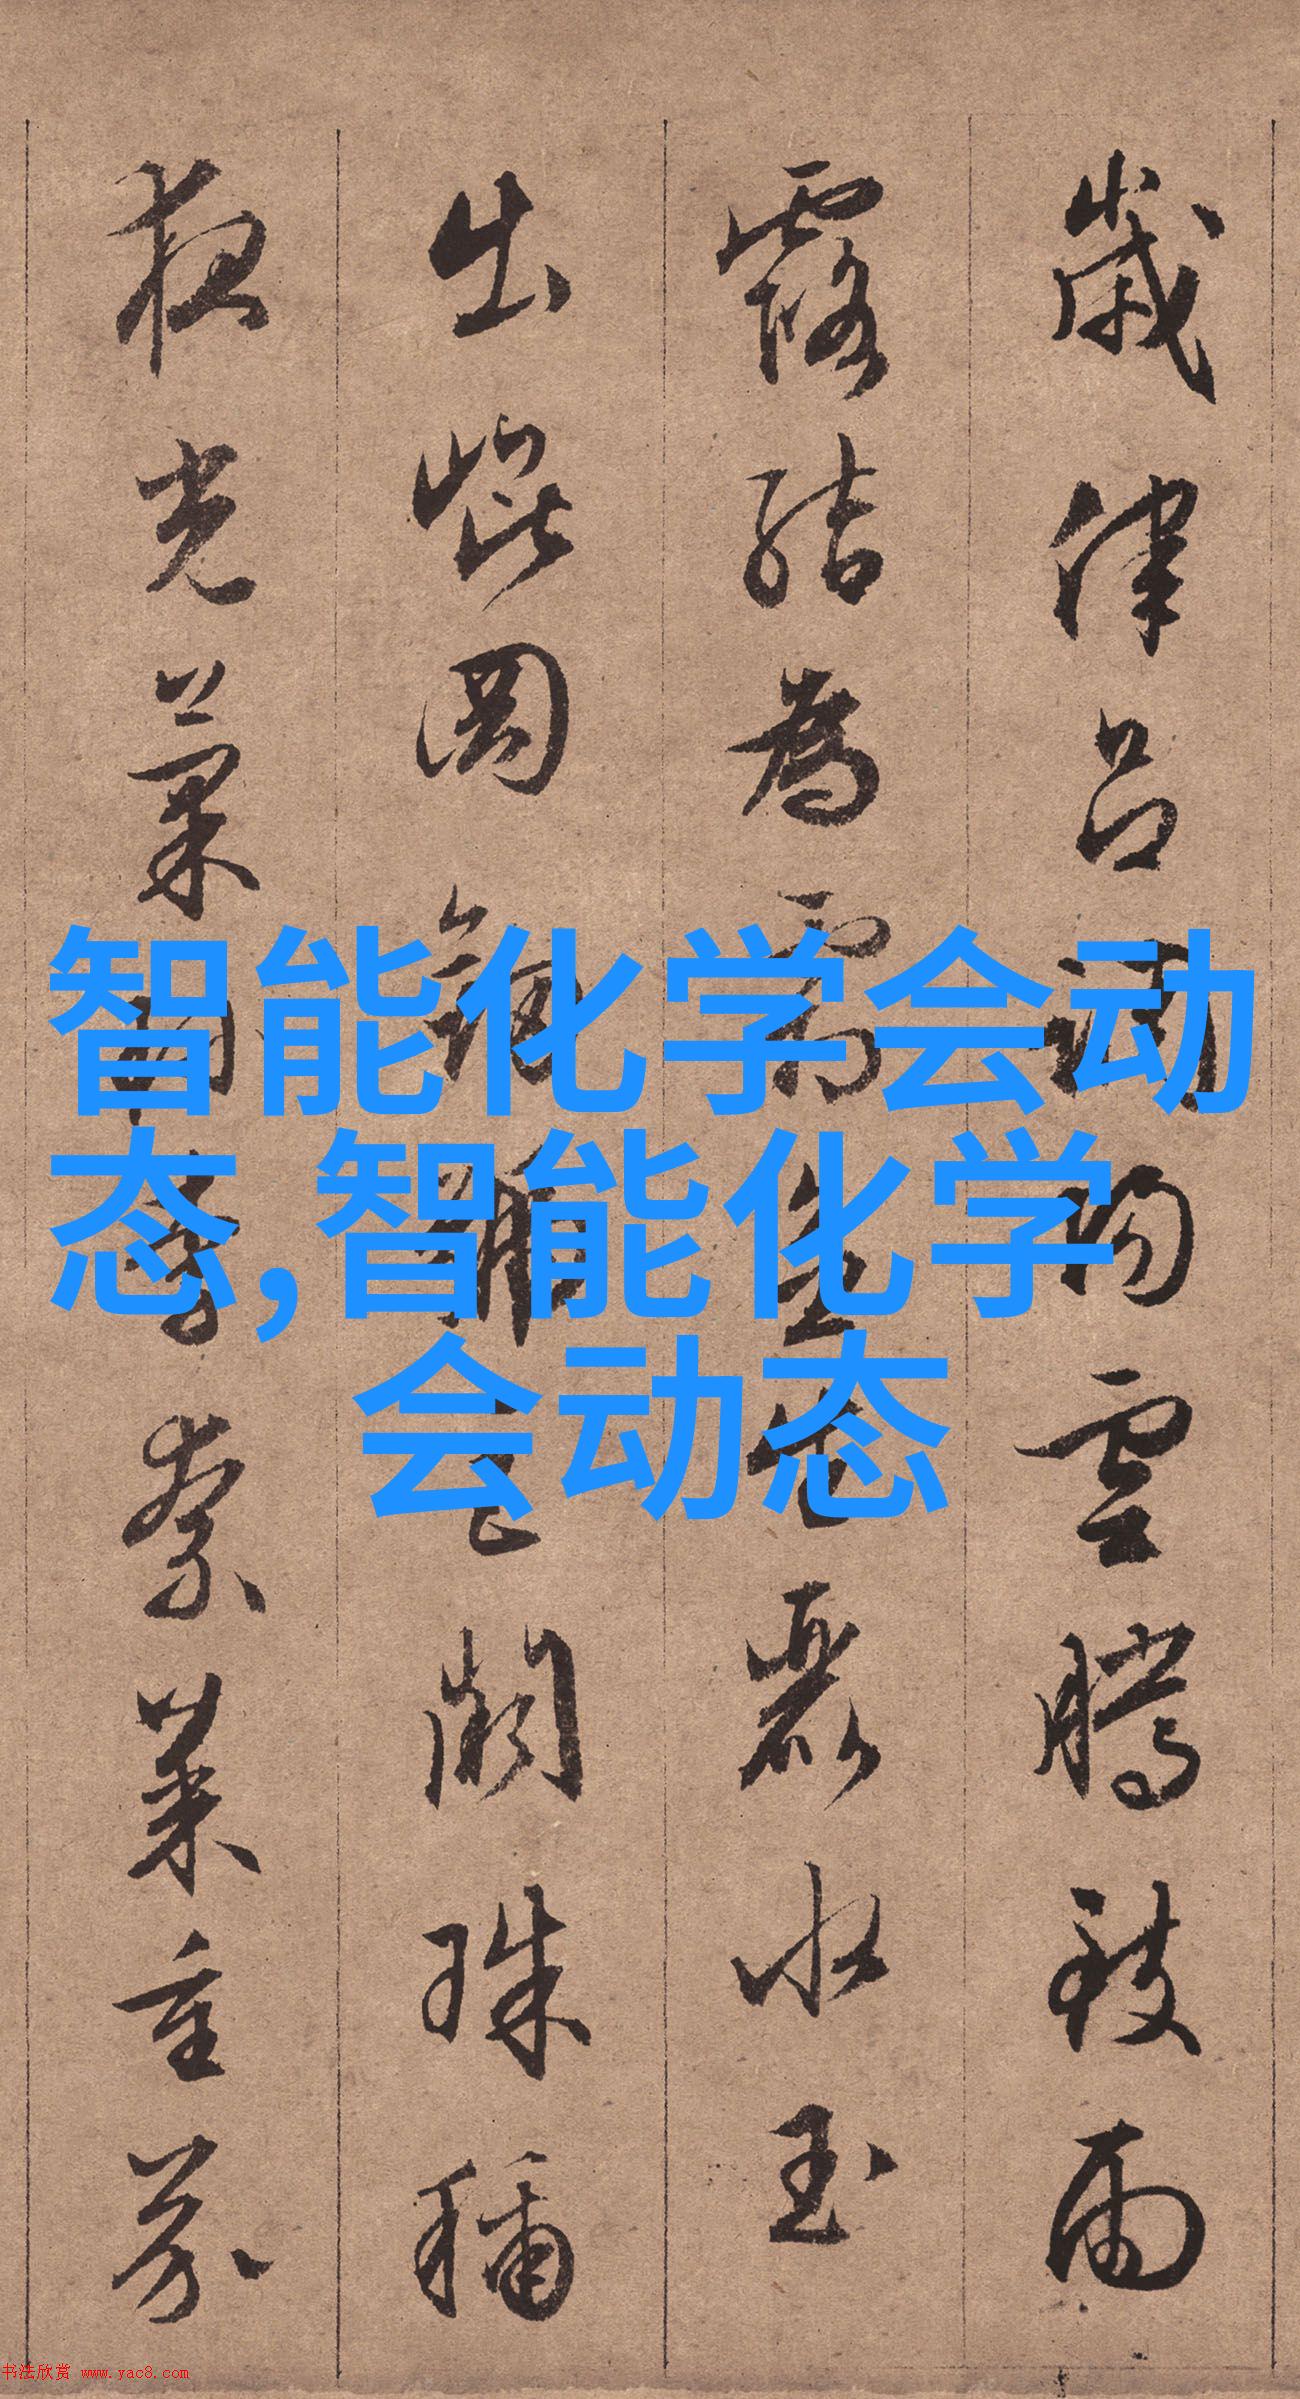 歲律呂調陽雲騰致雨
露結為霜金生麗水玉
出崐岡劍號巨闕珠稱
夜光菓珍李柰菜重芥
智能化学会动
态,智能化学
会动态
书法欣赏 www.yac8.com